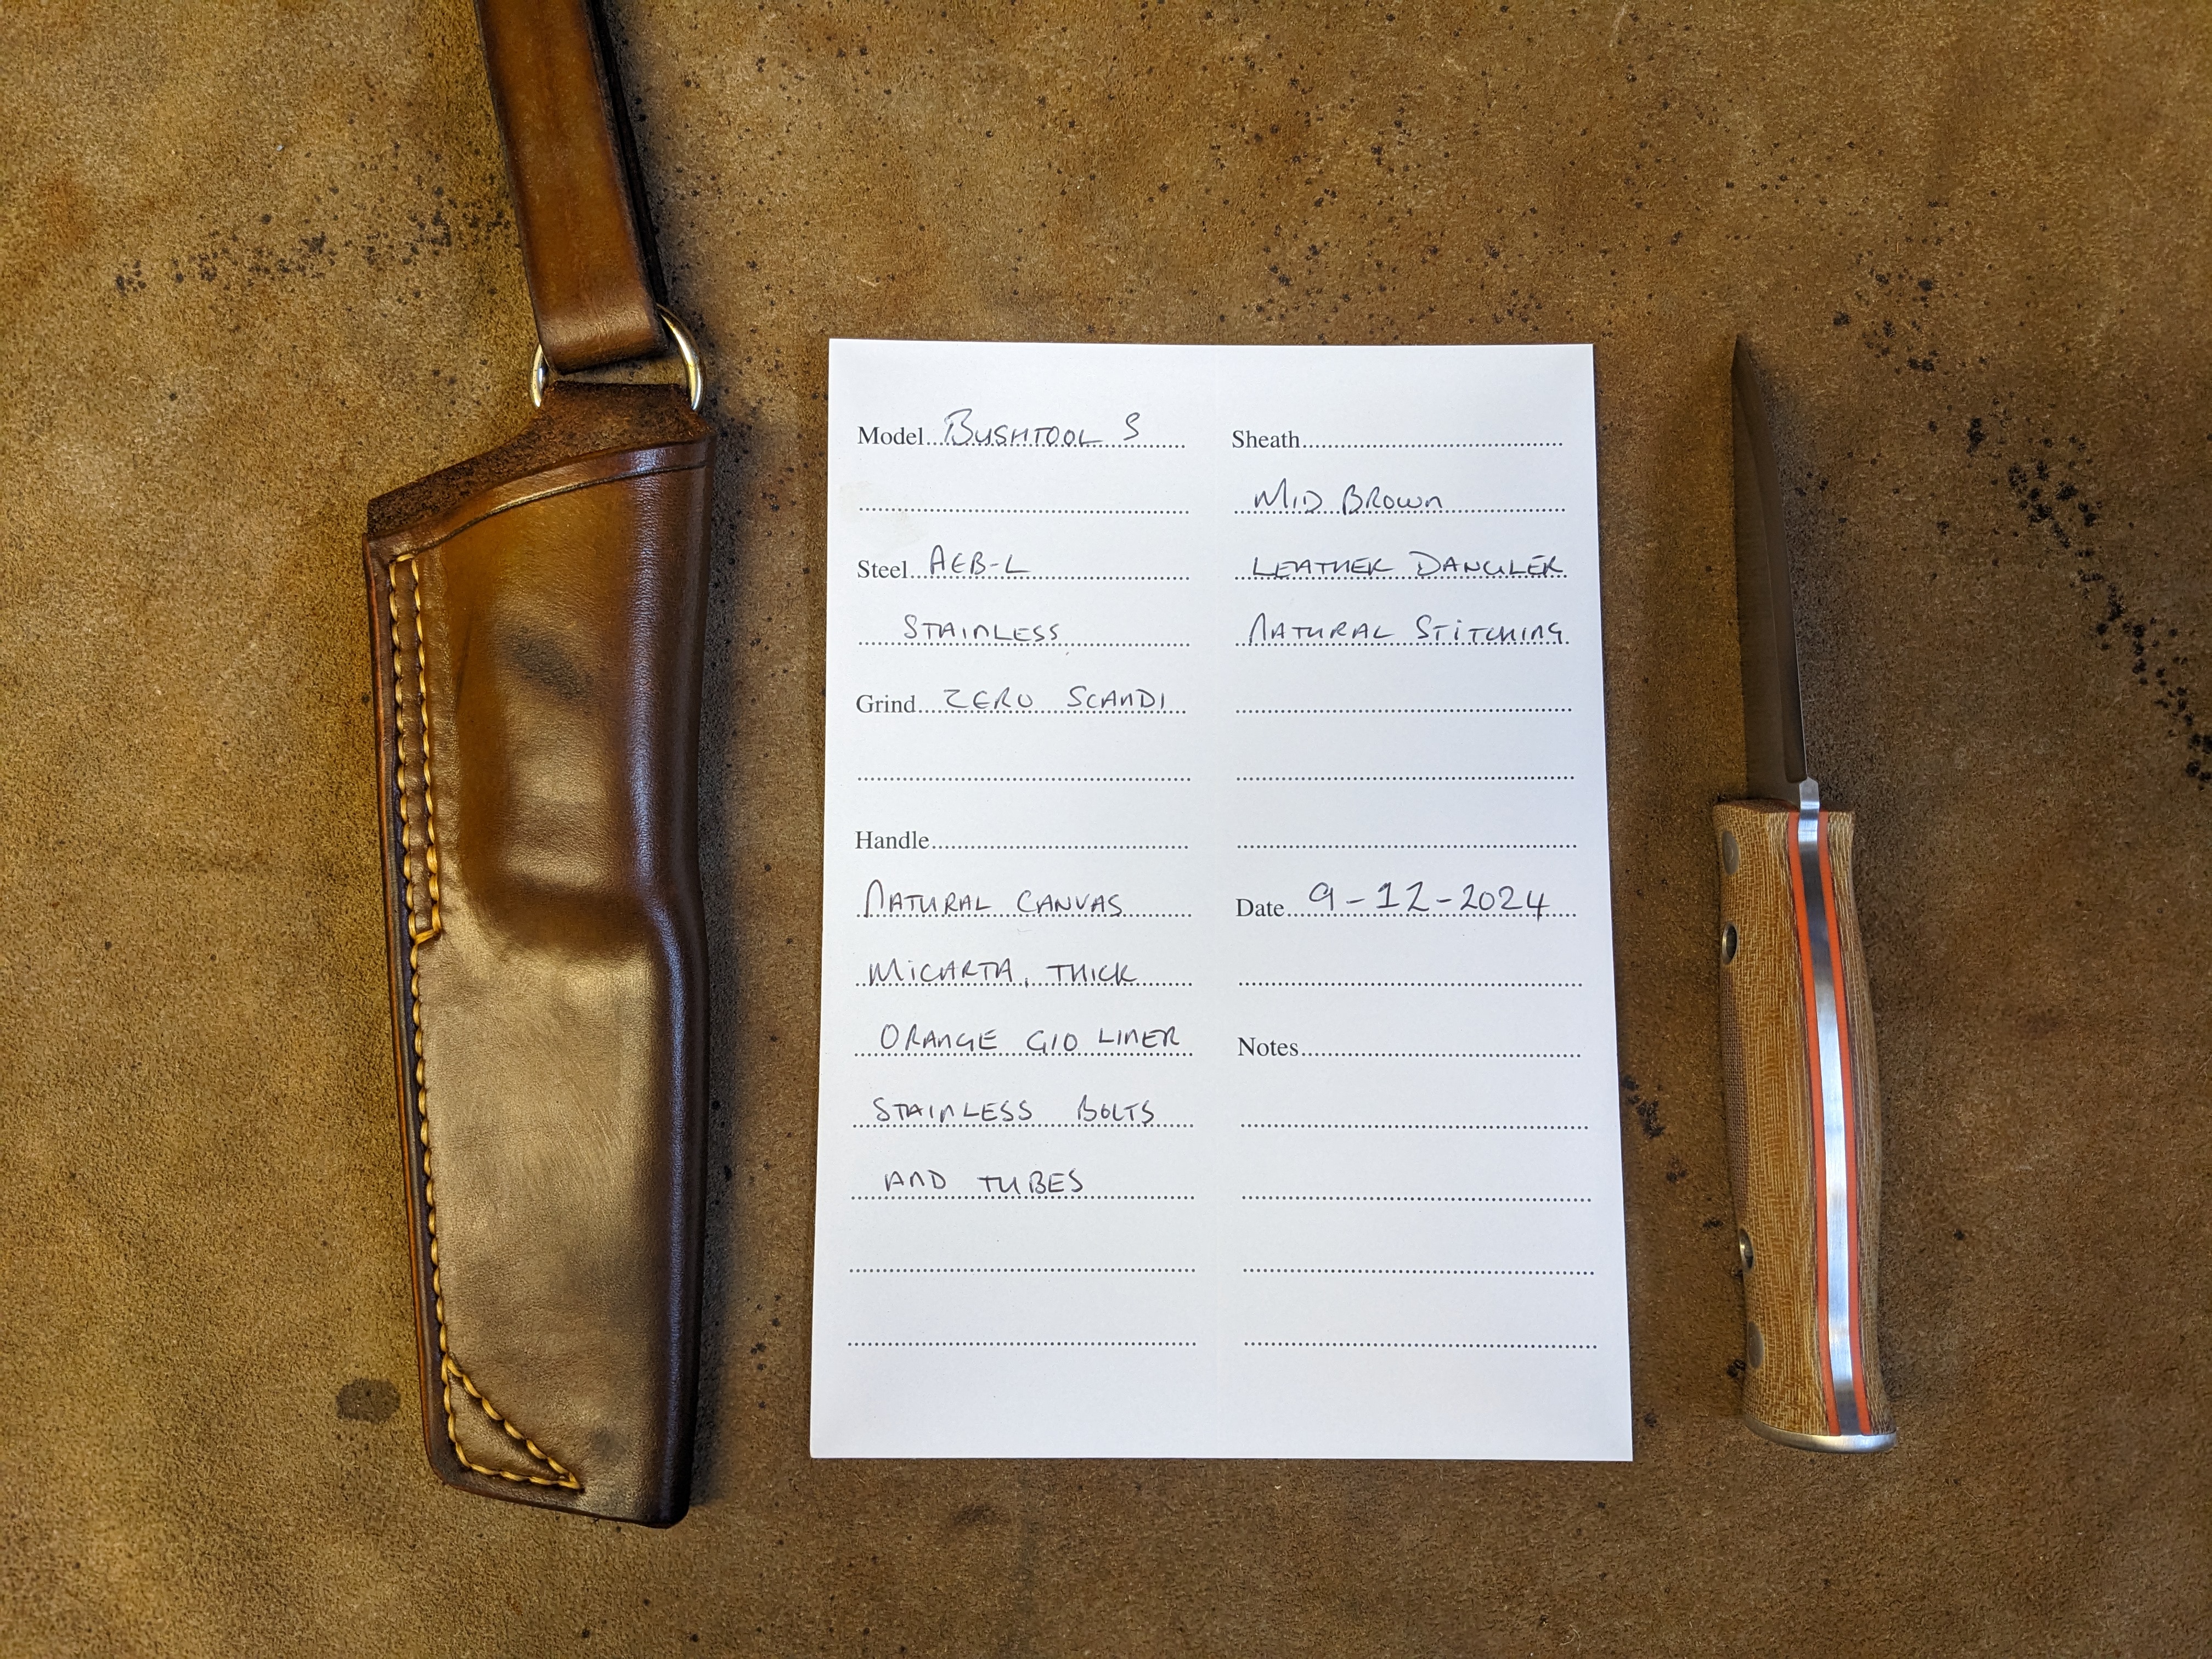 Model Bushtool S
Steel AEB-L
Stainless
Grind Zero Scandi
Handle
Natural Canvas
Micarta, Thick
Orange G10 Liner
Stainless Bolts
and Tubes
Sheath
Mid Brown
Leather Dangler
Natural Stitching
Date 9-12-2024
Notes